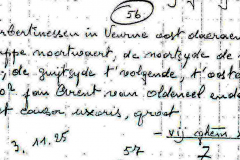 56
rbertinessen in Veurne oost daeraen
uppe noortwaert, de noortzyde de
, de zuitzyde t'volgende, t'oosten
jan Brent van oldeneel ende
st causa uxoris, groot
vij
3. 11.25
57 7